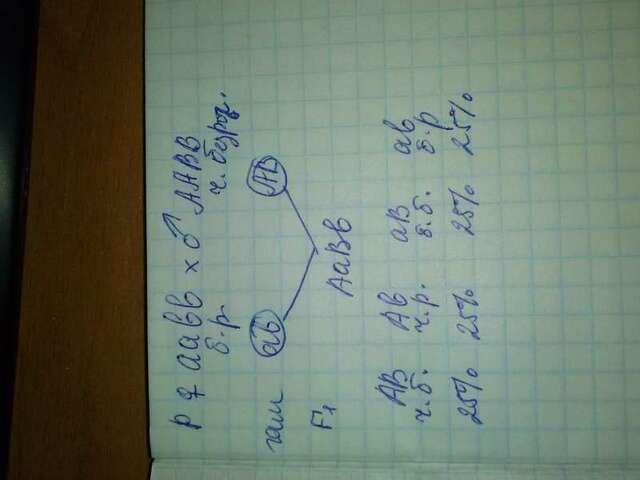 P ♀ aaвв × ♂ AABB
б.р ч. безрог.
гам ав AB
F₁ AaBв
AB Aв aB ав
ч.б. ч.р. б.б. б.р
25% 25% 25% 25%